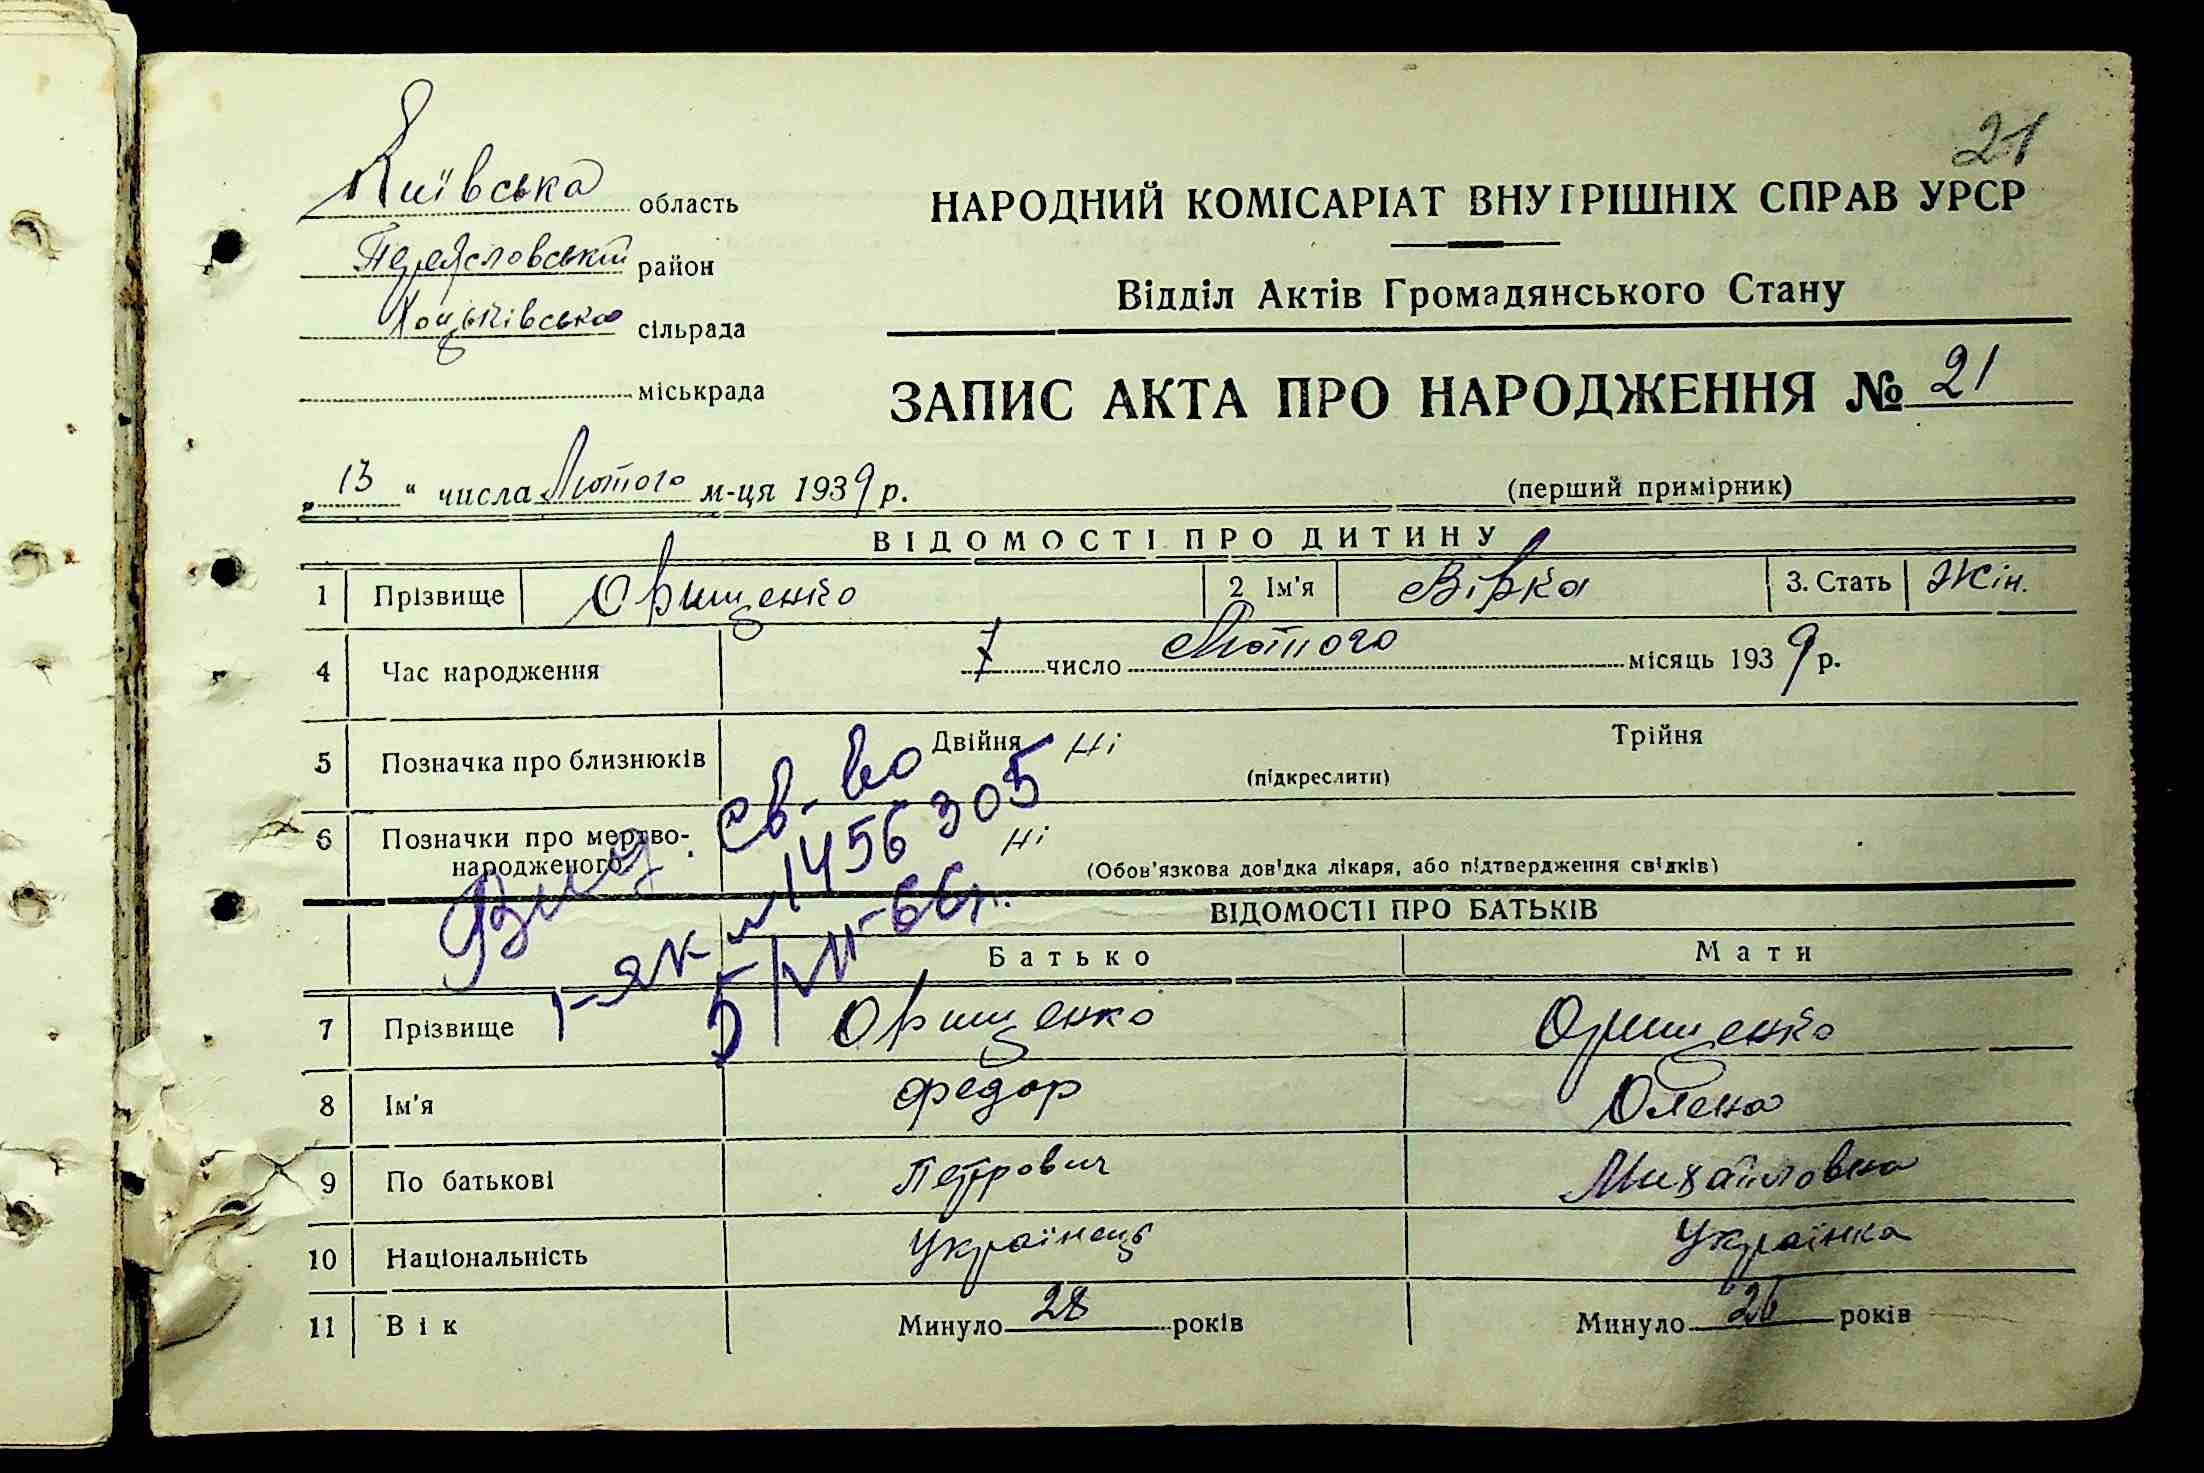 21
Київська область
НАРОДНИЙ КОМІСАРІАТ ВНУТРІШНІХ СПРАВ УРСР
Переясловський район
Відділ Актів Громадянського Стану
Хоцьківська сільрада
міськрада
ЗАПИС АКТА ПРО НАРОДЖЕННЯ № 21
„ 13 “ числа Лютого м-ця 1939 р.
(перший примірник)
ВІДОМОСТІ ПРО ДИТИНУ
1 Прізвище Орищенко 2 Ім'я Вірка 3. Стать Жін.
4 Час народження 7 число Лютого місяць 1939 р.
5 Позначка про близнюків Двійня Ні Трійня
(підкреслити)
6 Позначки про мертво-
народженого Ні (Обов'язкова довідка лікаря, або підтвердження свідків)
Вид. св-во
1-ЯК № 1456305
5/VII-66г.
ВІДОМОСТІ ПРО БАТЬКІВ
Батько Мати
7 Прізвище Орищенко Орищенко
8 Ім'я Федор Олена
9 По батькові Петрович Михайловна
10 Національність Українець Українка
11 Вік Минуло 28 років Минуло 26 років